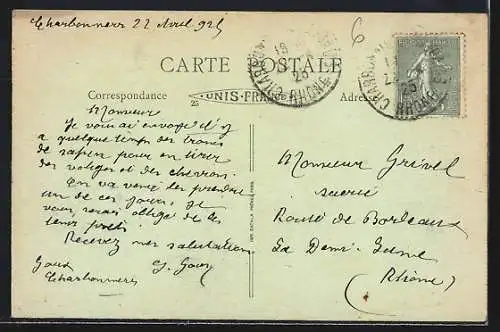 Charbonnières 22 Avril 925
6
CARTE POSTALE
Correspondance
UNIS-FRANCE
25
Adresse
CHARBON
RHONE
19
25
CHARBON
RHONE
25
Monsieur
Je vous ai envoyé il y
a quelque temps des troncs
de sapin pour en tirer
des voliges et des chevrons.
On va venir les prendre
un de ces jours. Je
vous serai obligé de les
tenir prêts.
Recevez mes salutations
Goux
Charbonnières
Monsieur Grivel
scierie
Route de Bordeaux
La Demi-Lune
(Rhône)